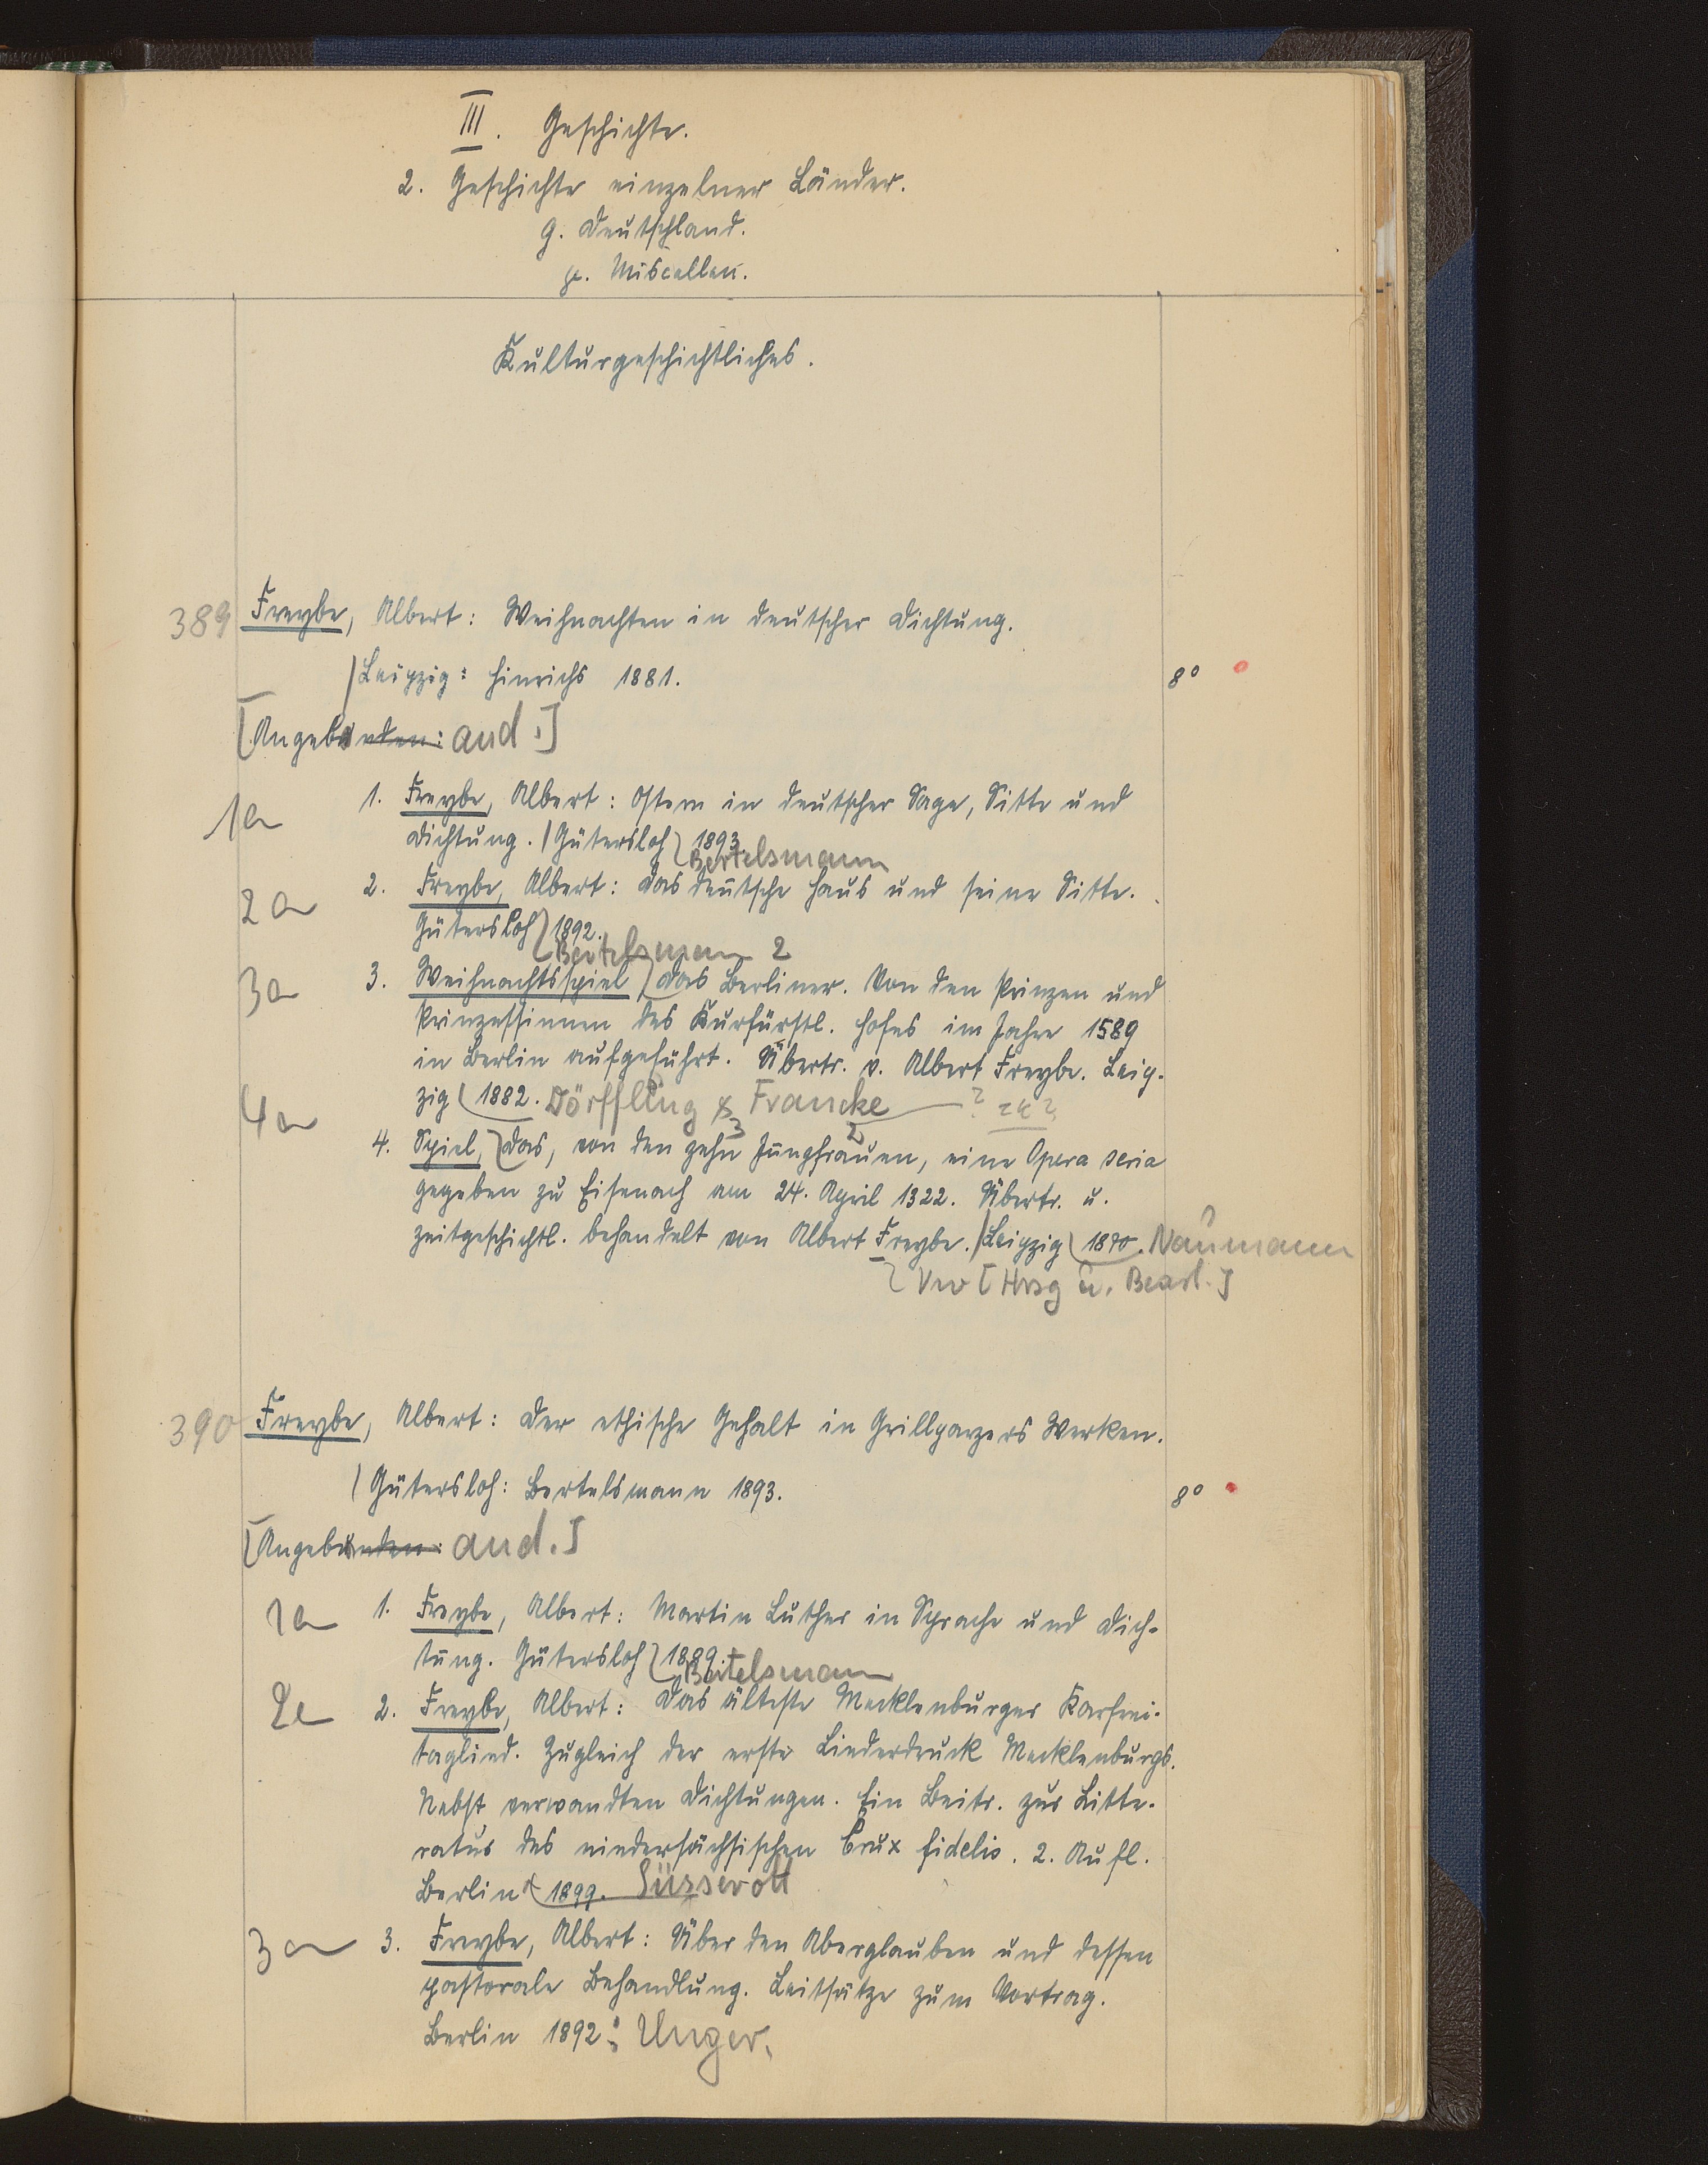 III. Geschichte.
2. Geschichte einzelner Länder.
g. Deutschland.
p. Miscellen.
Kulturgeschichtliches.
389 Freybe, Albert: Weihnachten in deutscher Dichtung.
/Leipzig: Hinrichs 1881. 8°
[Angebunden: and.]
1a 1. Freybe, Albert: Ostern in deutscher Sage, Sitte und
Dichtung. /Gütersloh 1893.
Bertelsmann
2a 2. Freybe, Albert: Das deutsche Haus und seine Sitte.
Gütersloh 1892.
Bertelsmann 2
3a 3. Weihnachtsspiel, Das Berliner. Von den Prinzen und
Prinzessinnen des Kurfürstl. Hofes im Jahre 1589
in Berlin aufgeführt. Übertr. v. Albert Freybe. Leip-
zig 1882. Dörffling & Francke ?
4a 4. Spiel, Das, von den zehn Jungfrauen, eine Opera seria
gegeben zu Eisenach am 24. April 1322. Übertr. u.
zeitgeschichtl. behandelt von Albert Freybe. /Leipzig 1870. Naumann
Vw [Hrsg u. Bearb.]
390 Freybe, Albert: Der ethische Gehalt in Grillparzers Werken.
/Gütersloh: Bertelsmann 1893. 8°
[Angebunden: and.]
1a 1. Freybe, Albert: Martin Luther in Sprache und Dich-
tung. Gütersloh 1889.
Bertelsmann
2a 2. Freybe, Albert: Das älteste Mecklenburger Karfrei-
taglied. Zugleich der erste Liederdruck Mecklenburgs.
Nebst verwandten Dichtungen. Ein Beitr. zur Litte-
ratur des niedersächsischen Crux fidelis. 2. Aufl.
Berlin 1899. Süsserott
3a 3. Freybe, Albert: Über den Aberglauben und dessen
pastorale Behandlung. Leitsätze zum Vortrag.
Berlin 1892: Unger.